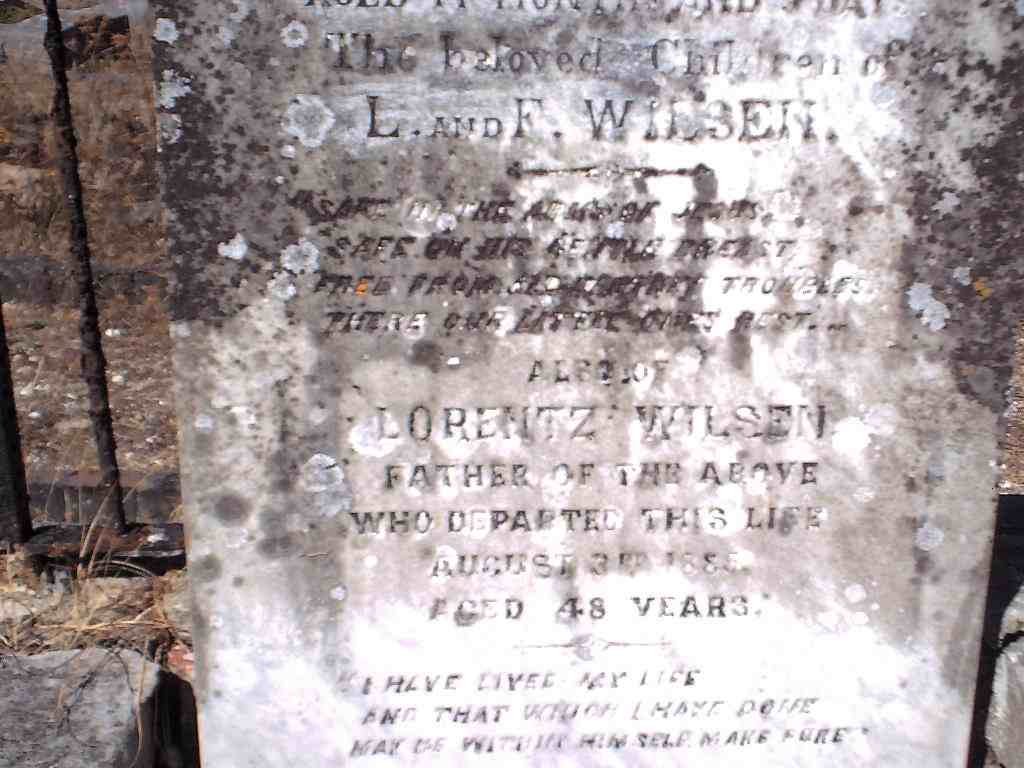 AGED 11 MONTHS AND DAY
The beloved Children of
L. AND F. WILSEN.
"SAFE IN THE ARMS OF JESUS,
SAFE ON HIS GENTLE BREAST
FREE FROM TROUBLES
THERE OUR LITTLE ONES REST.
ALSO OF
LORENTZ WILSEN
FATHER OF THE ABOVE
WHO DEPARTED THIS LIFE
AUGUST 3RD
AGED 48 YEARS.
"I HAVE LIVED MY LIFE
AND THAT WHICH I HAVE DONE
MAY HE WITHIN HIMSELF MAKE PURE"